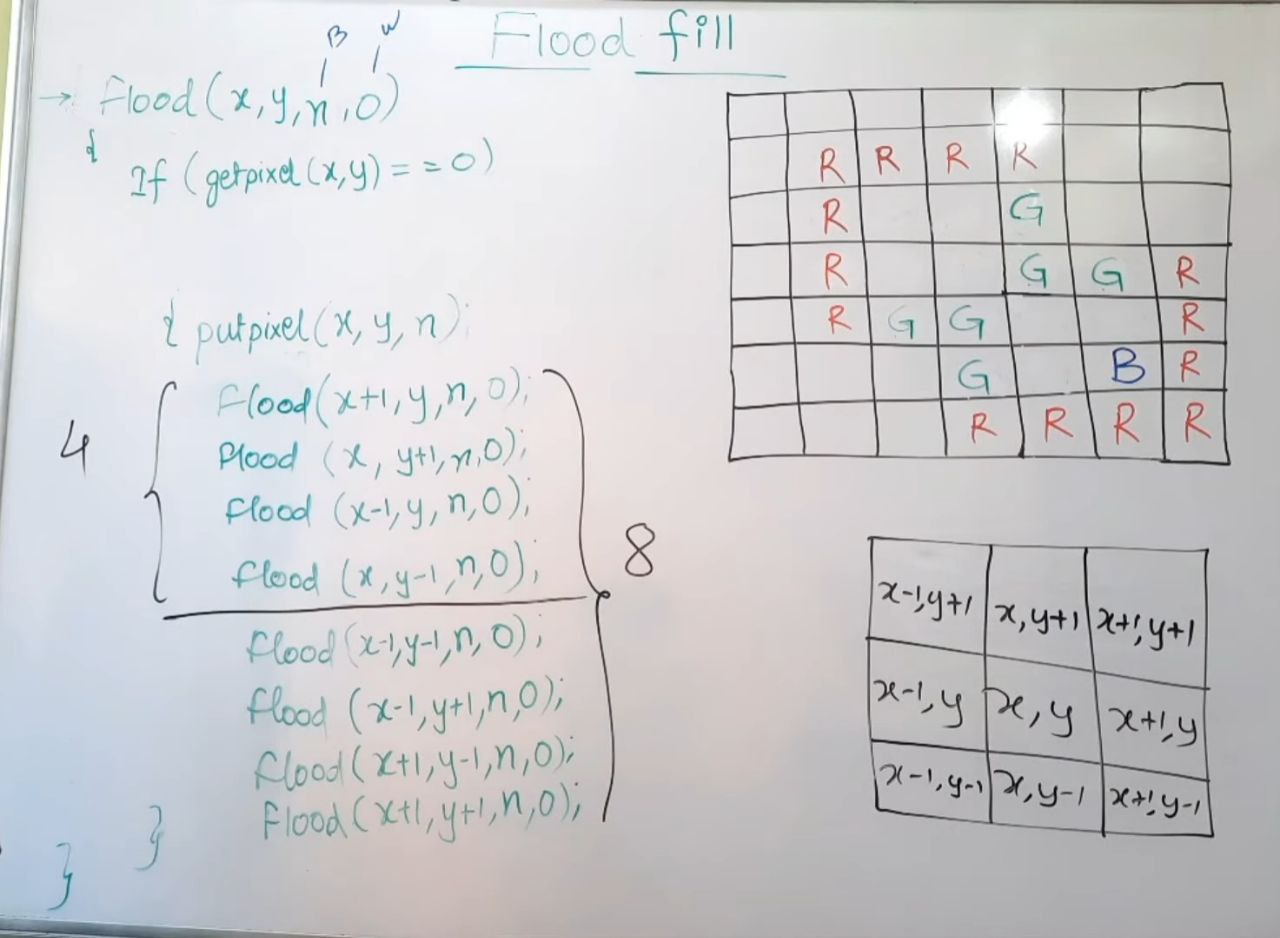 Flood fill
B W
→ Flood (x, y, n, 0)
{
If (getpixel (x, y) = = 0)
{ putpixel (x, y, n);
Flood (x+1, y, n, 0);
Flood (x, y+1, n, 0);
Flood (x-1, y, n, 0);
flood (x, y-1, n, 0);
4
8
flood (x-1, y-1, n, 0);
flood (x-1, y+1, n, 0);
flood (x+1, y-1, n, 0);
Flood (x+1, y+1, n, 0);
}
}
R R R R
R G
R G G R
R G G R
G B R
R R R R
x-1, y+1 x, y+1 x+1, y+1
x-1, y x, y x+1, y
x-1, y-1 x, y-1 x+1, y-1